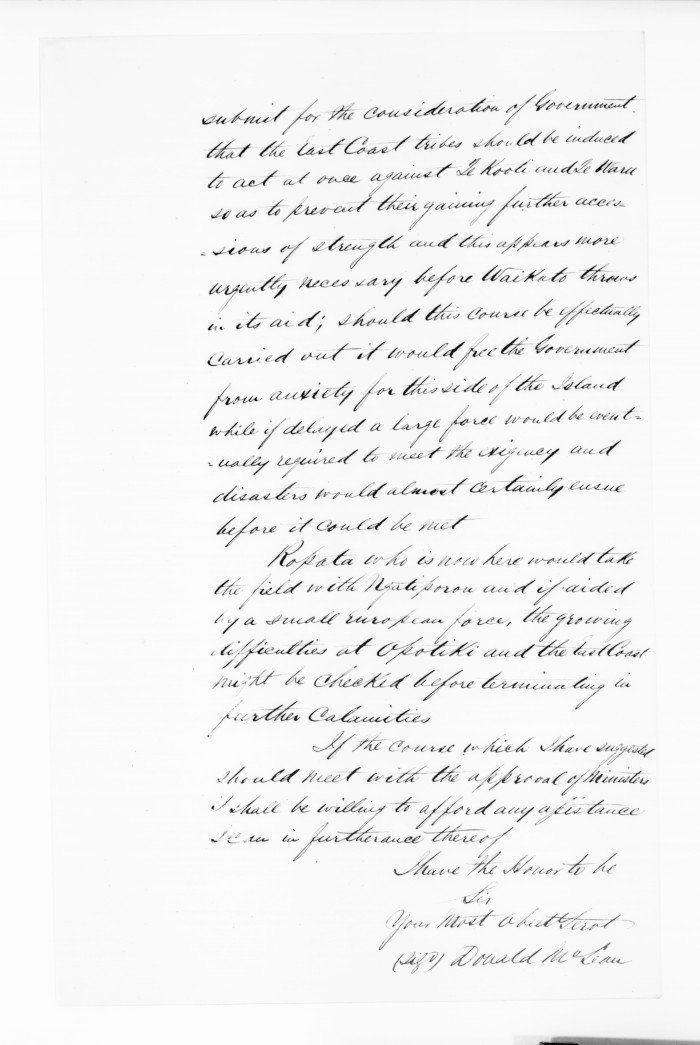 submit for the consideration of Government.
that the East Coast tribes should be induced
to act at once against Te Kooti and Te Waru
so as to prevent their gaining further acces=
=sions of strength and this appears more
urgently necessary before Waikato throws
in its aid; should this course be effectually
carried out it would free the Government
from anxiety for this side of the Island
while if delayed a large force would be event=
=ually required to meet the exigency and
disasters would almost certainly ensue
before it could be met
Ropata who is now here would take
the field with Ngatiporou and if aided
by a small European force, the growing
difficulties at Opotiki and the East Coast
might be checked before terminating in
further Calamities
If the course which I have suggested
should meet with the approval of Ministers
I shall be willing to afford any assistance
I can in furtherance thereof
I have the Honor to be
Sir
Your Most Obedt Servt
(sigd) Donald McLean